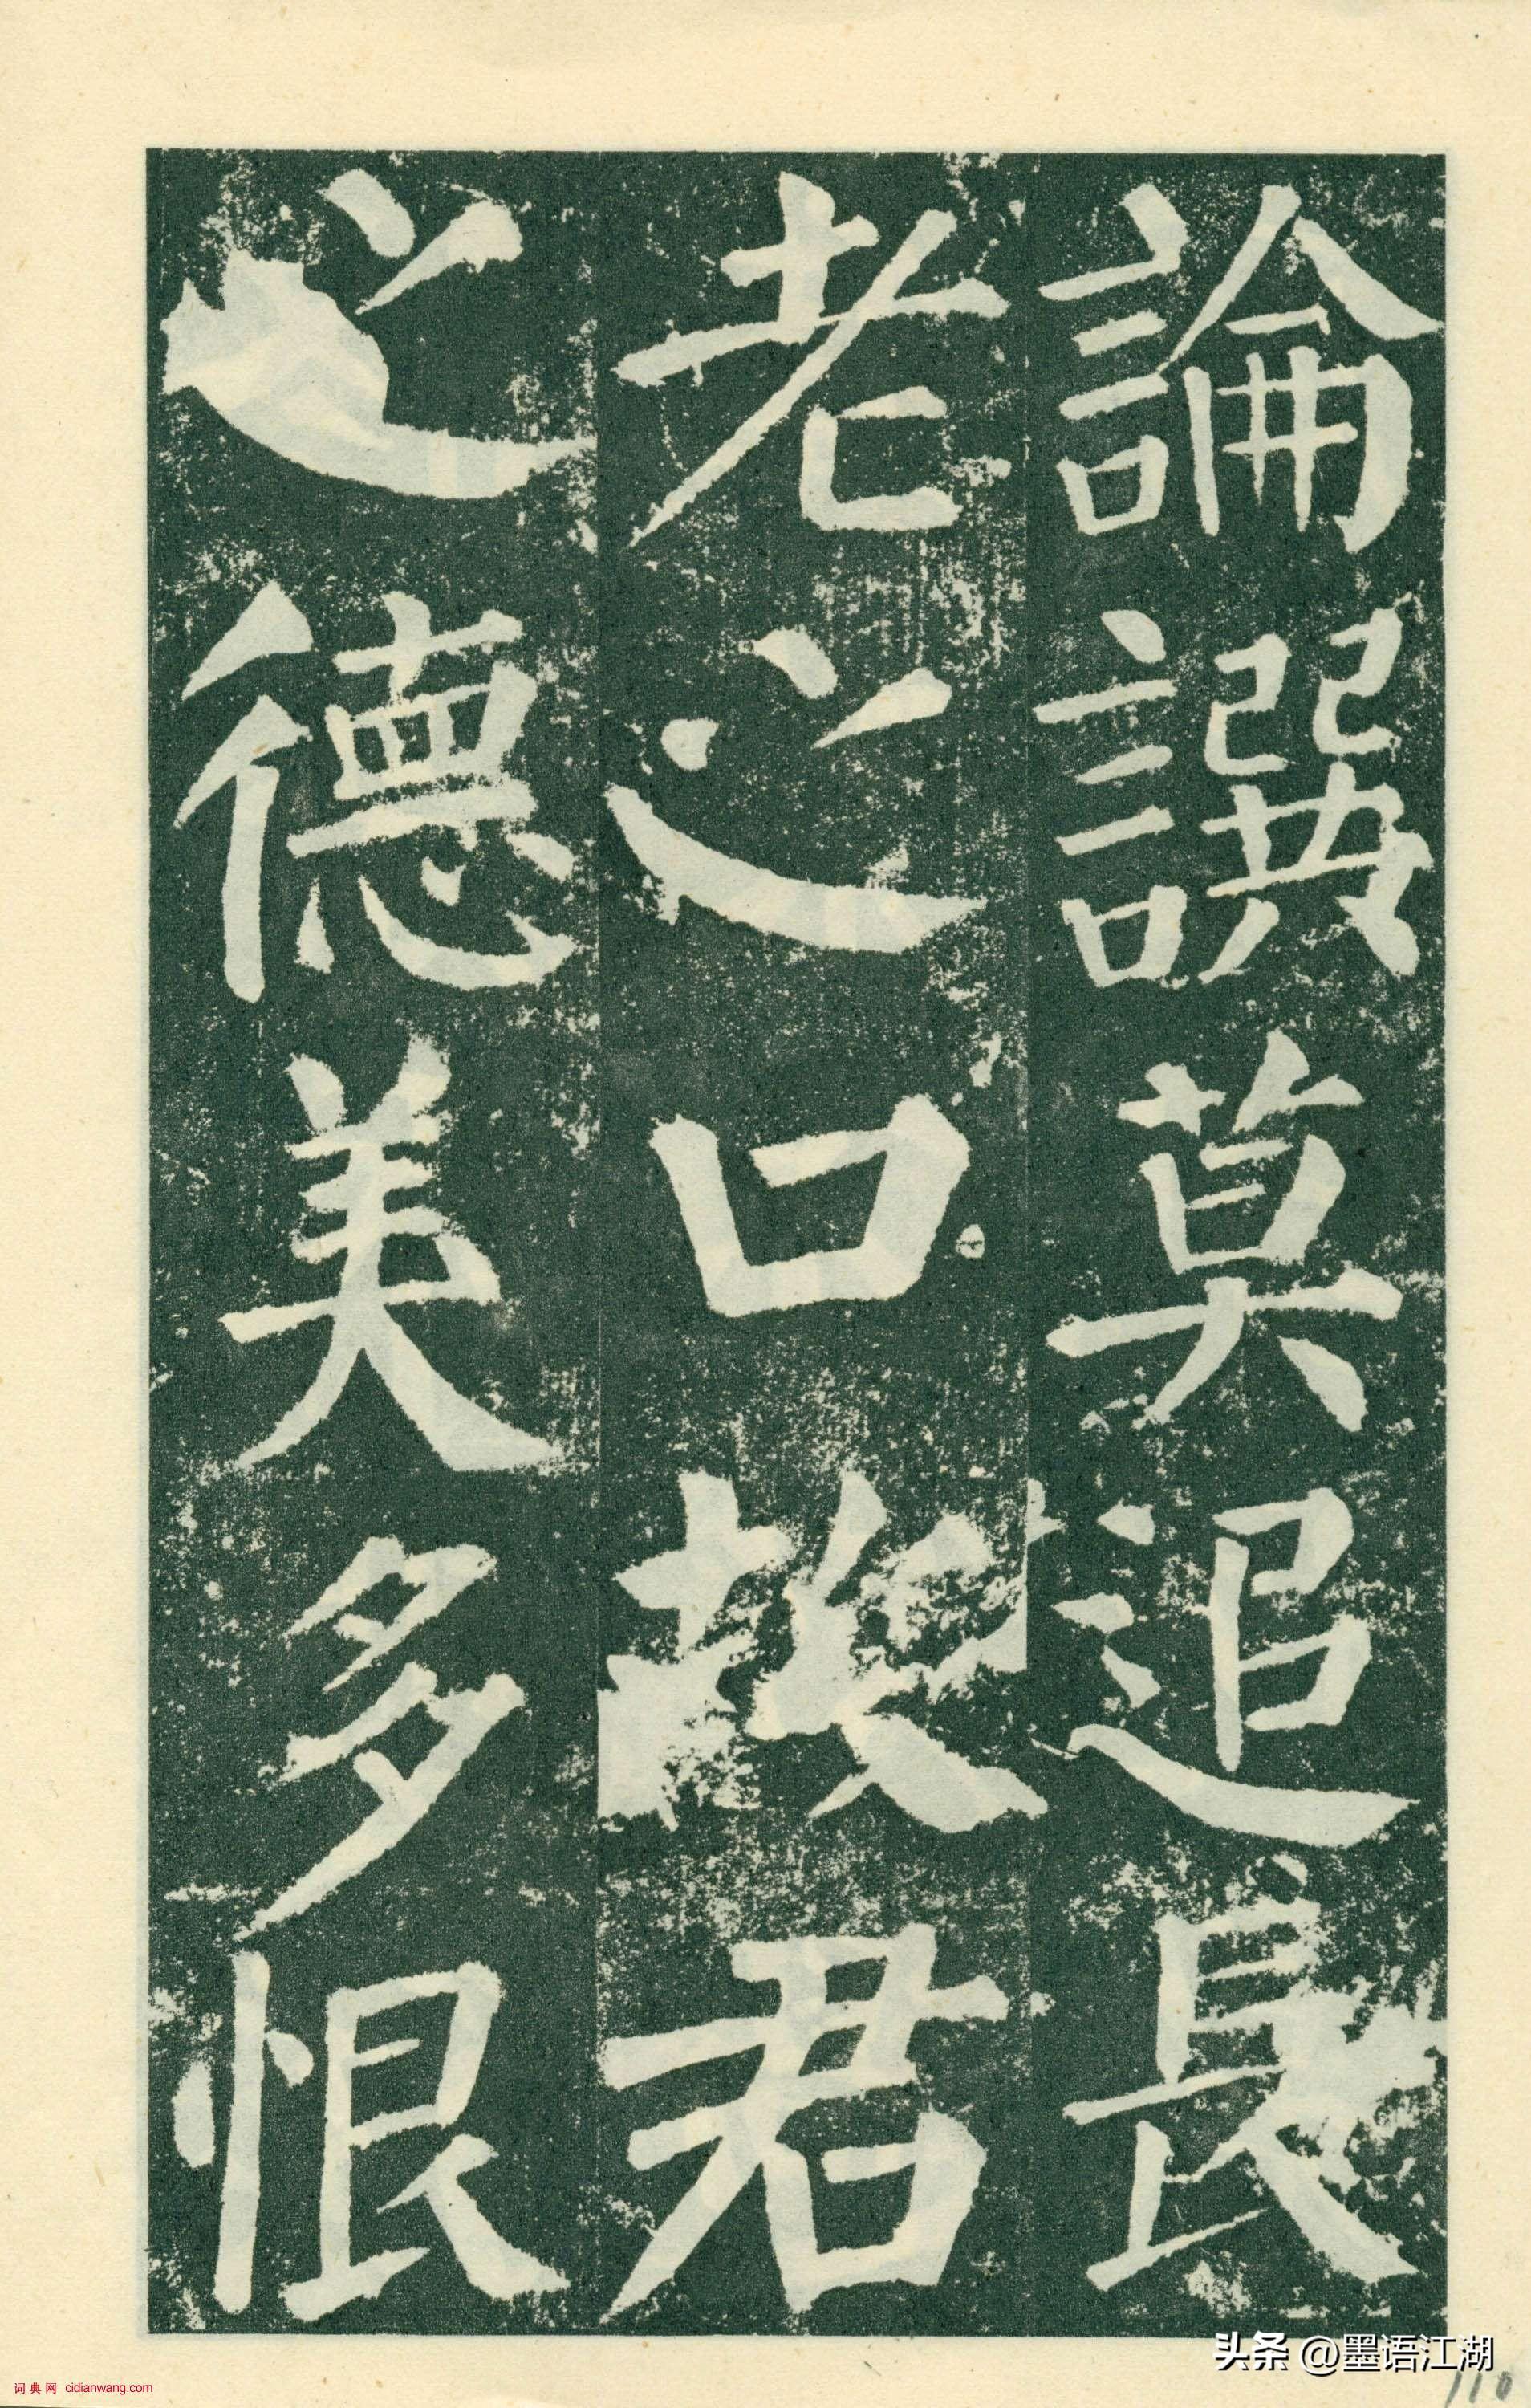 論譔莫追長
老之口故君
之德美多恨
头条 @墨语江湖
词典网 cidianwang.com
110